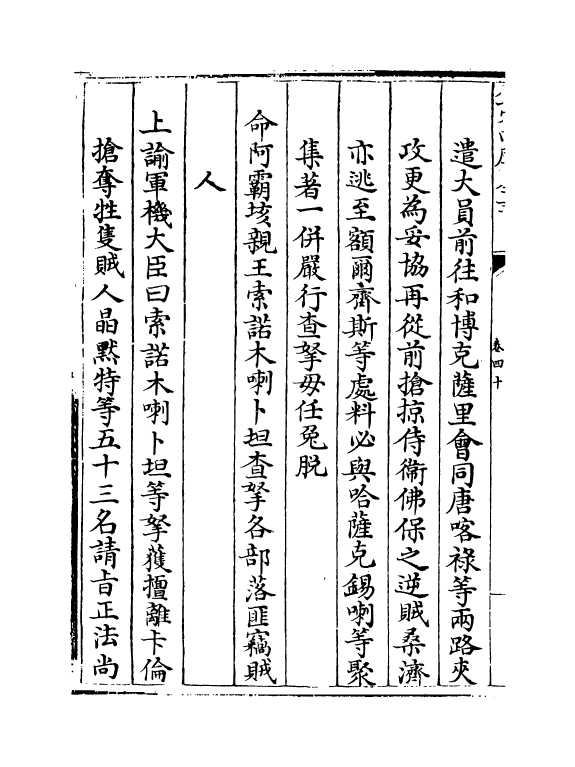 遣大員前往和博克薩里會同唐喀祿等兩路夾
攻更為妥協再從前搶掠侍衛佛保之逆賊桑濟
亦逃至額爾齊斯等處料必與哈薩克錫喇等聚
集著一併嚴行查拏毋任免脫
命阿霸垓親王索諾木喇卜坦查拏各部落匪竊賊
人
上諭軍機大臣曰索諾木喇卜坦等拏獲擅離卡倫
搶奪牲隻賊人晶黙特等五十三名請旨正法尚
卷四十